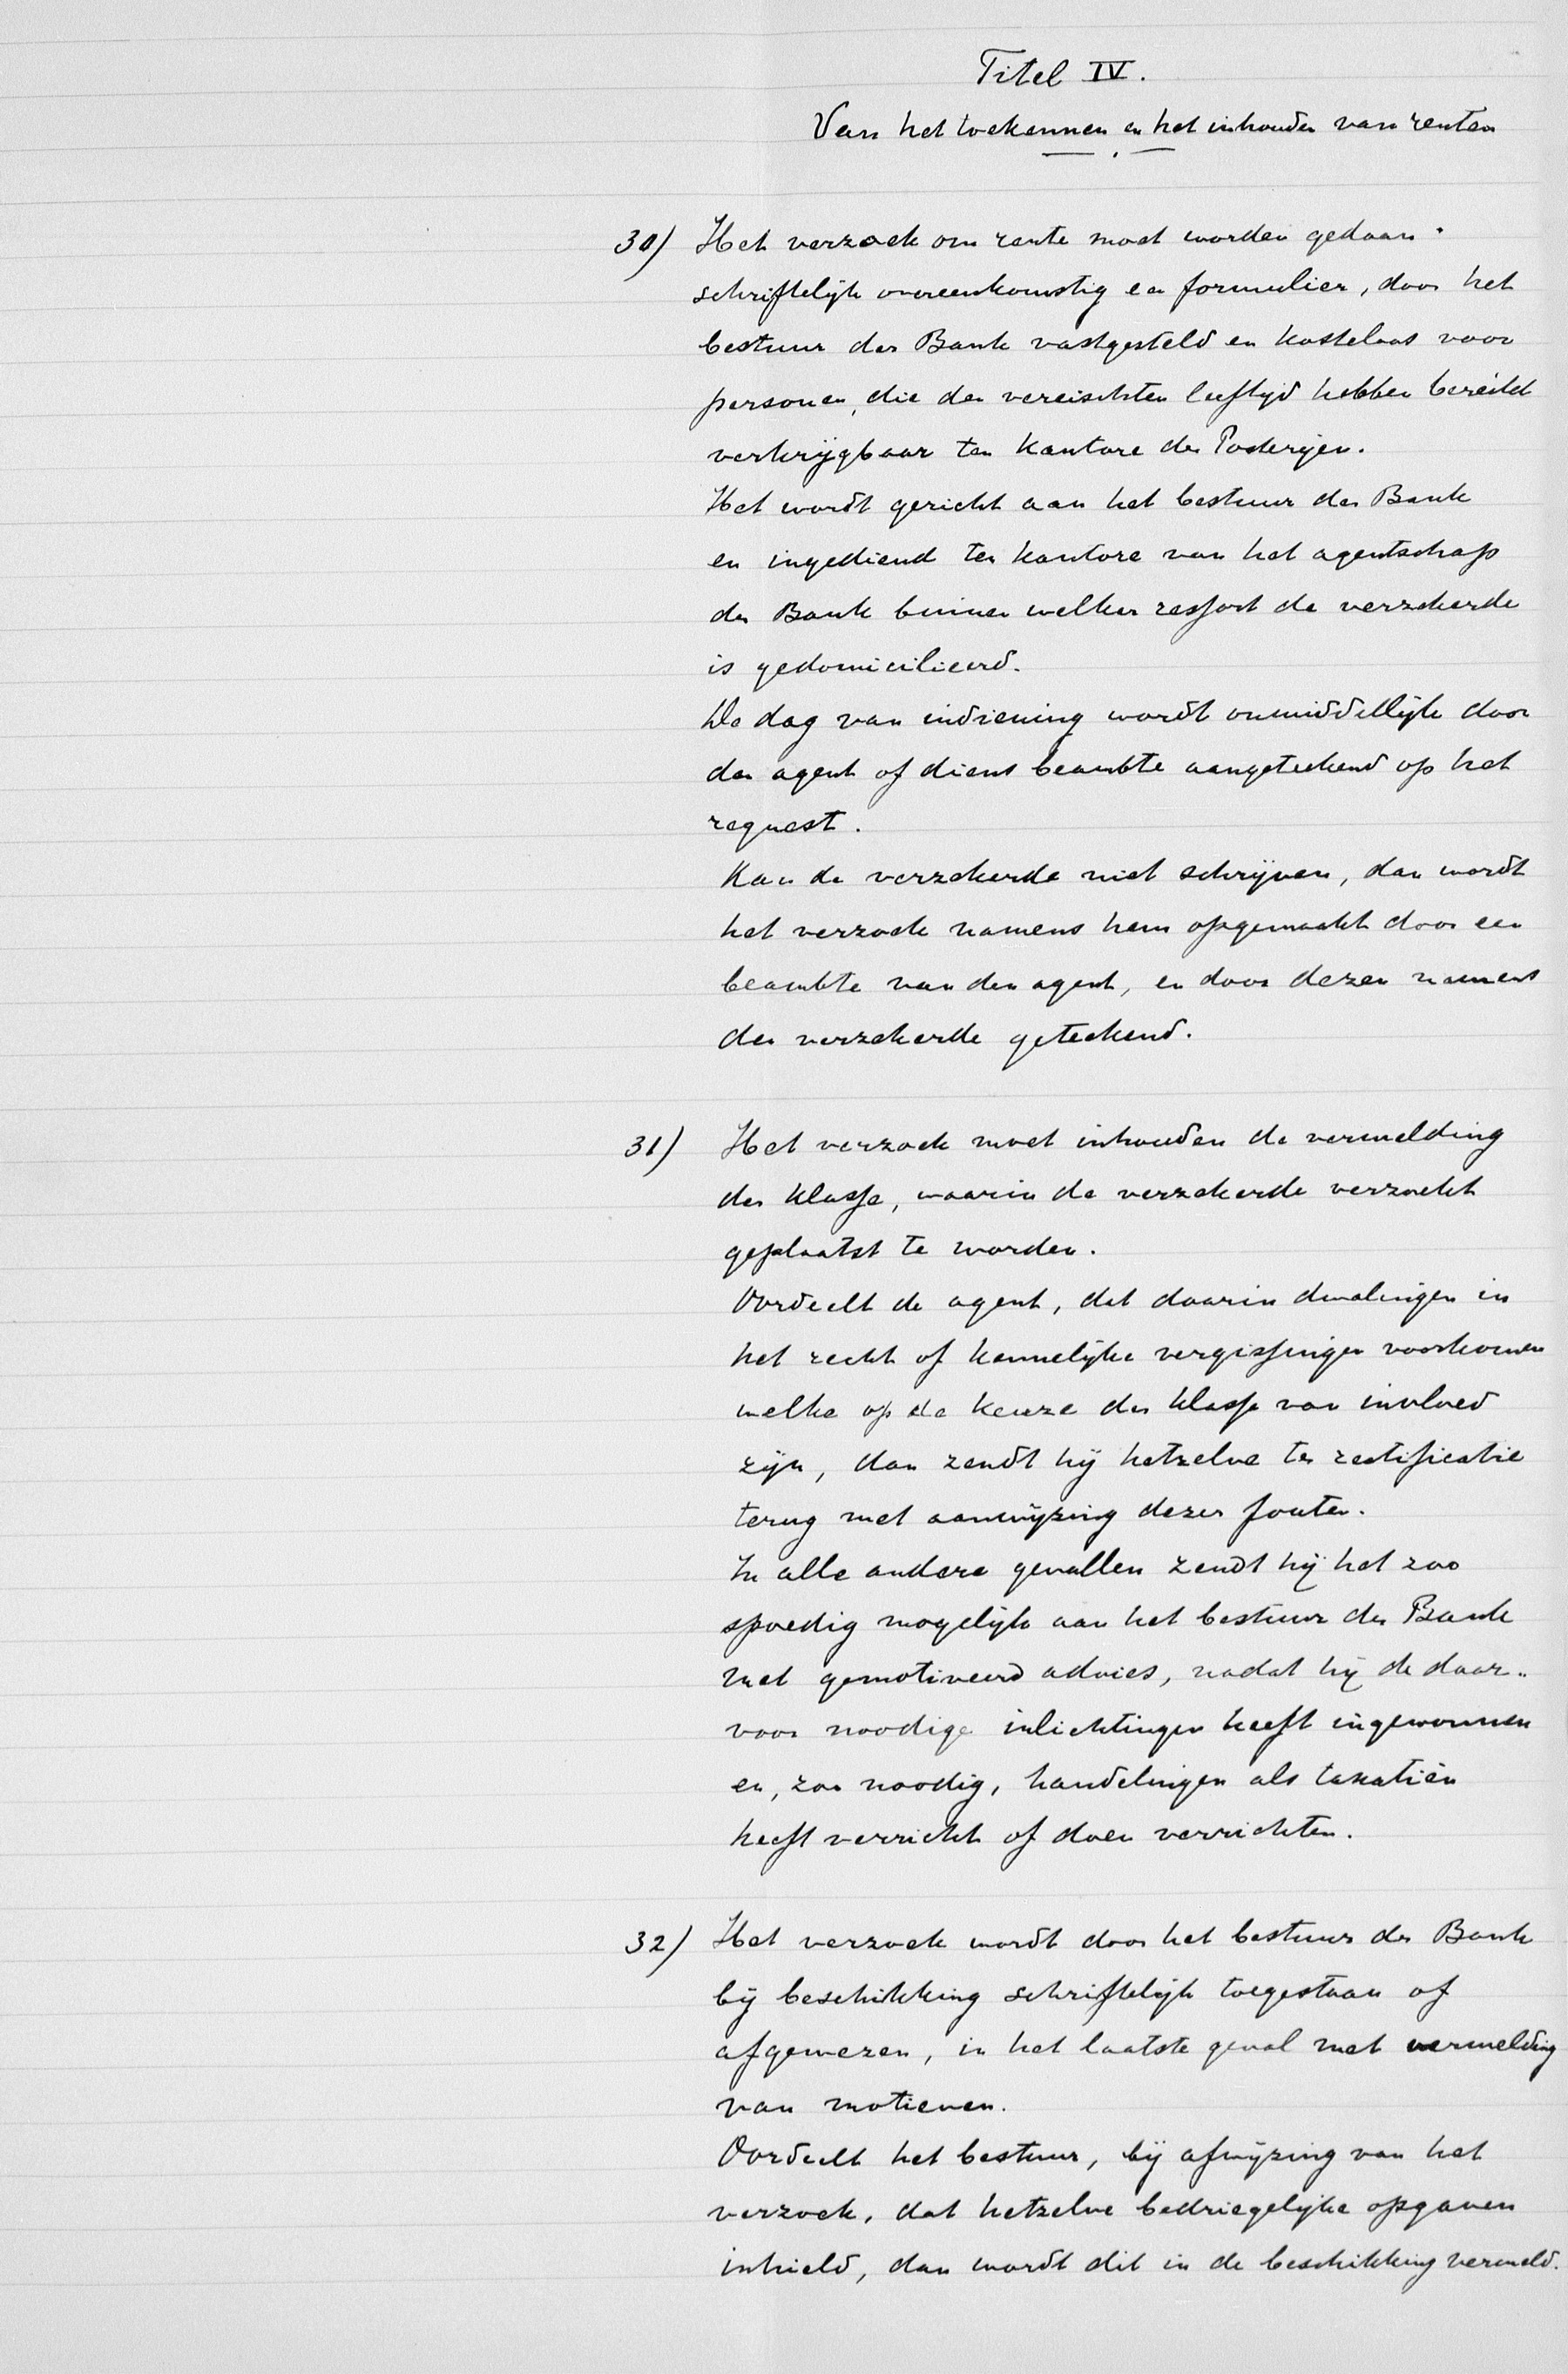 Titel IV.
Van het toekennen en het inhouden van renten
30) Het verzoek om rente moet worden gedaan
schriftelijk overeenkomstig een formulier, door het
bestuur der Bank vastgesteld en kosteloos voor
personen, die den vereischten leeftijd hebben bereikt
verkrijgbaar ten kantore der Posterijen.
Het wordt gericht aan het bestuur der Bank
en ingediend ten kantore van het agentschap
der Bank binnen welker ressort de verzekerde
is gedomicilieerd.
De dag van indiening wordt onmiddellijk door
den agent of diens beambte aangeteekend op het
request.
Kan de verzekerde niet schrijven, dan wordt
het verzoek namens hem opgemaakt door een
beambte van den agent, en door dezen namens
den verzekerde geteekend.
31) Het verzoek moet inhouden de vermelding
der klasse, waarin de verzekerde verzoekt
geplaatst te worden.
Oordeelt de agent, dat daarin dwalingen in
het recht of kennelijke vergissingen voorkomen
welke op de keuze der klasse van invloed
zijn, dan zendt hij hetzelve ter rectificatie
terug met aanwijzing dezer fouten.
In alle andere gevallen zendt hij het zoo
spoedig mogelijk aan het bestuur der Bank
met gemotiveerd advies, nadat hij de daar-
voor noodige inlichtingen heeft ingewonnen
en, zoo noodig, handelingen als taxatiën
heeft verricht of doen verrichten.
32) Het verzoek wordt door het bestuur der Bank
bij beschikking schriftelijk toegestaan of
afgewezen, in het laatste geval met vermelding
van motieven.
Oordeelt het bestuur, bij afwijzing van het
verzoek, dat hetzelve bedriegelijke opgaven
inhield, dan wordt dit in de beschikking vermeld.